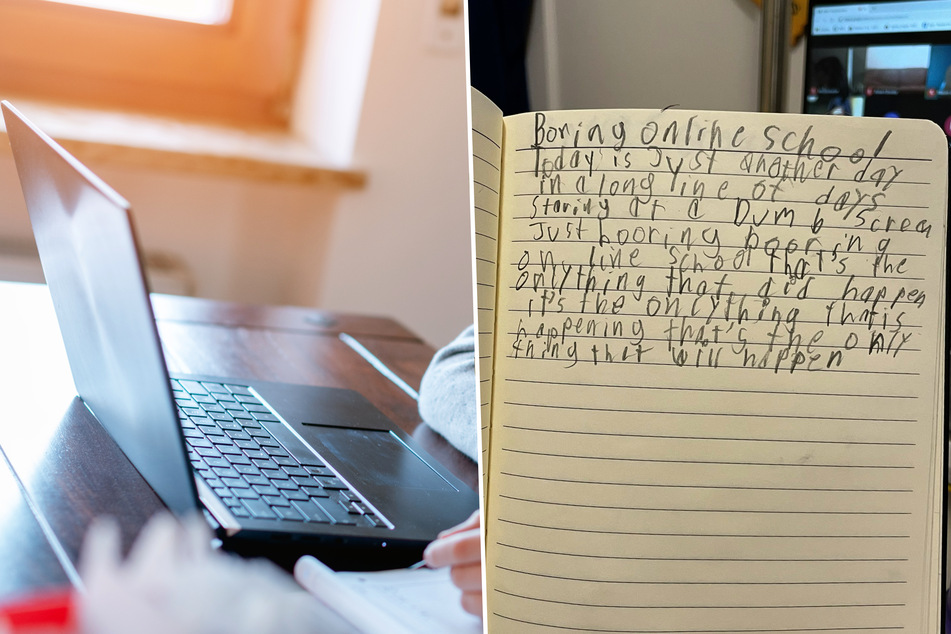 Boring online school
Today is Just another day
in a long line of days
Staring at a Dumb Screen
Just booring booring
on line school that's the
onlything that did happen
it's the onlything that is
happening that's the only
thing that will happen